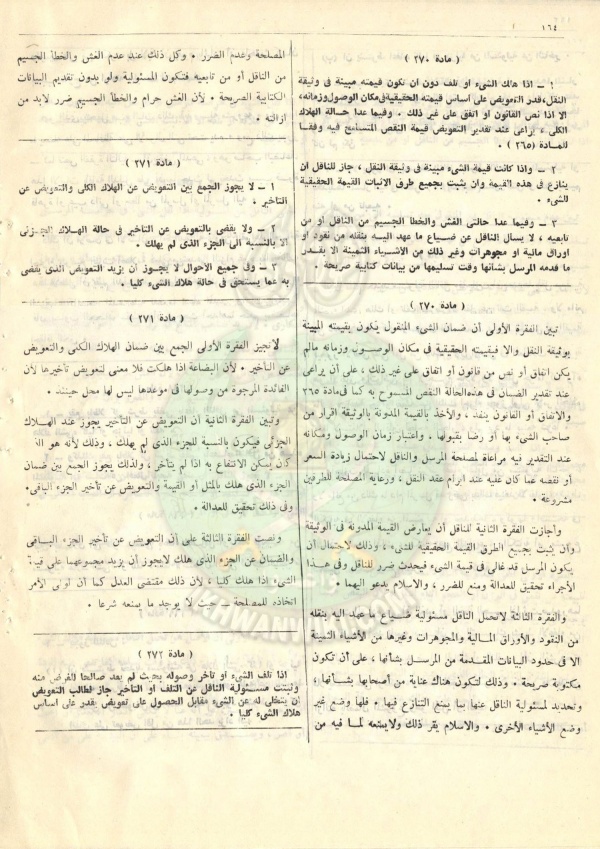 ١٦٤
( مادة ٢٧٠ )
١ ـ اذا هلك الشىء او تلف دون ان تكون قيمته مبينة فى وثيقة
النقل، قدر التعويض على اساس قيمته الحقيقية فى مكان الوصول وزمانه،
الا اذا نص القانون او اتفق على غير ذلك ، وفيما عدا حالة الهلاك
الكلى ، يراعى عند تقدير التعويض قيمة النقص المتسامح فيه وفقا
للمادة (٢٦٥) .
٢ ـ واذا كانت قيمة الشىء مبينة فى وثيقة النقل ، جاز للناقل ان
ينازع فى هذه القيمة وان يثبت بجميع طرق الاثبات القيمة الحقيقية
للشىء .
٣ ـ وفيما عدا حالتى الغش والخطأ الجسيم من الناقل أو من
تابعيه ، لا يسأل الناقل عن ضياع ما عهد اليه بنقله من نقود او
اوراق مالية او مجوهرات وغير ذلك من الأشياء الثمينة الا بقدر
ما قدمه المرسل بشأنها وقت تسليمها من بيانات كتابية صريحة .
( مادة ٢٧٠ )
تبين الفقرة الأولى أن ضمان الشىء المنقول يكون بقيمته المبينة
بوثيقة النقل والا فبقيمته الحقيقية فى مكان الوصول وزمانه مالم
يكن اتفاق أو نص من قانون أو اتفاق على غير ذلك ، على أن يراعى
عند تقدير الضمان فى هذه الحالة النقص المسموح به كما فى مادة ٢٦٥
والاتفاق أو القانون ينفذ ، والأخذ بالقيمة المدونة بالوثيقة اقرار من
صاحب الشىء بها أو رضا بقبولها . واعتبار زمان الوصول ومكانه
عند التقدير فيه مراعاة لمصلحة المرسل والناقل لاحتمال زيادة السعر
أو نقصه عما كان عليه عند ابرام عقد النقل ، ورعاية المصلحة للطرفين
مشروعة .
وأجازت الفقرة الثانية للناقل أن يعارض القيمة المدونة فى الوثيقة
وأن يثبت بجميع الطرق القيمة الحقيقية للشىء ، وذلك لاحتمال أن
يكون المرسل قد غالى فى قيمة الشىء فيحدث ضرر للناقل وفى هذا
الأجراء تحقيق للعدالة ومنع للضرر ، والاسلام يدعو اليهما .
والفقرة الثالثة لاتحمل الناقل مسئولية ضياع ما عهد اليه بنقله
من النقود والأوراق المالية والمجوهرات وغيرها من الأشياء الثمينة
الا فى حدود البيانات المقدمة من المرسل بشأنها ، على أن تكون
مكتوبة صريحة . وذلك لتكون هناك عناية من أصحابها بشأنها ،
وتحديد لمسئولية الناقل عنها بما يمنع التنازع فيها . فلها وضع غير
وضع الأشياء الأخرى . والاسلام يقر ذلك ولايمنعه لما فيه من
المصلحة وعدم الضرر . وكل ذلك عند عدم الغش والخطأ الجسيم
من الناقل أو من تابعيه فتكون المسئولية ولو بدون تقديم البيانات
الكتابية الصريحة . لأن الغش حرام والخطأ الجسيم ضرر لابد من
ازالته .
( مادة ٢٧١ )
١ ـ لا يجوز الجمع بين التعويض عن الهلاك الكلى والتعويض عن
التاخير .
٢ ـ ولا يقضى بالتعويض عن التاخير فى حالة الهلاك الجزئى
الا بالنسبة الى الجزء الذى لم يهلك .
٣ ـ وفى جميع الأحوال لا يجوز أن يزيد التعويض الذى يقضى
به عما يستحق فى حالة هلاك الشىء كليا .
( مادة ٢٧١ )
لاتجيز الفقرة الأولى الجمع بين ضمان الهلاك الكلى والتعويض
عن التأخير . لأن البضاعة اذا هلكت فلا معنى لتأخيرها لأن
الفائدة المرجوة من وصولها فى موعدها ليس لها محل حينئذ .
وتبين الفقرة الثانية أن التعويض عن التأخير يجوز عند الهلاك
الجزئى فيكون بالنسبة للجزء الذى لم يهلك ، وذلك لأنه هو الذى
كان يمكن الانتفاع به اذا لم يتأخر ، ولذلك يجوز الجمع بين ضمان
الجزء الذى هلك بالمثل أو القيمة والتعويض عن تأخير الجزء الباقى .
وفى ذلك تحقيق للعدالة .
ونصت الفقرة الثالثة على أن التعويض عن تأخير الجزء الباقى
والضمان عن الجزء الذى هلك لايجوز أن يزيد مجموعهما على قيمة
الشىء اذا هلك كليا ، لأن ذلك مقتضى العدل كما أن لولى الأمر
اتخاذه للمصلحة ـ حيث لا يوجد ما يمنعه شرعا .
( مادة ٢٧٢ )
اذا تلف الشىء او تأخر وصوله بحيث لم يعد صالحا للغرض منه
وثبتت مسئولية الناقل عن التلف أو التاخير جاز لطالب التعويض
أن يتخلى له عن الشىء مقابل الحصول على تعويض يقدر على اساس
هلاك الشىء كليا .